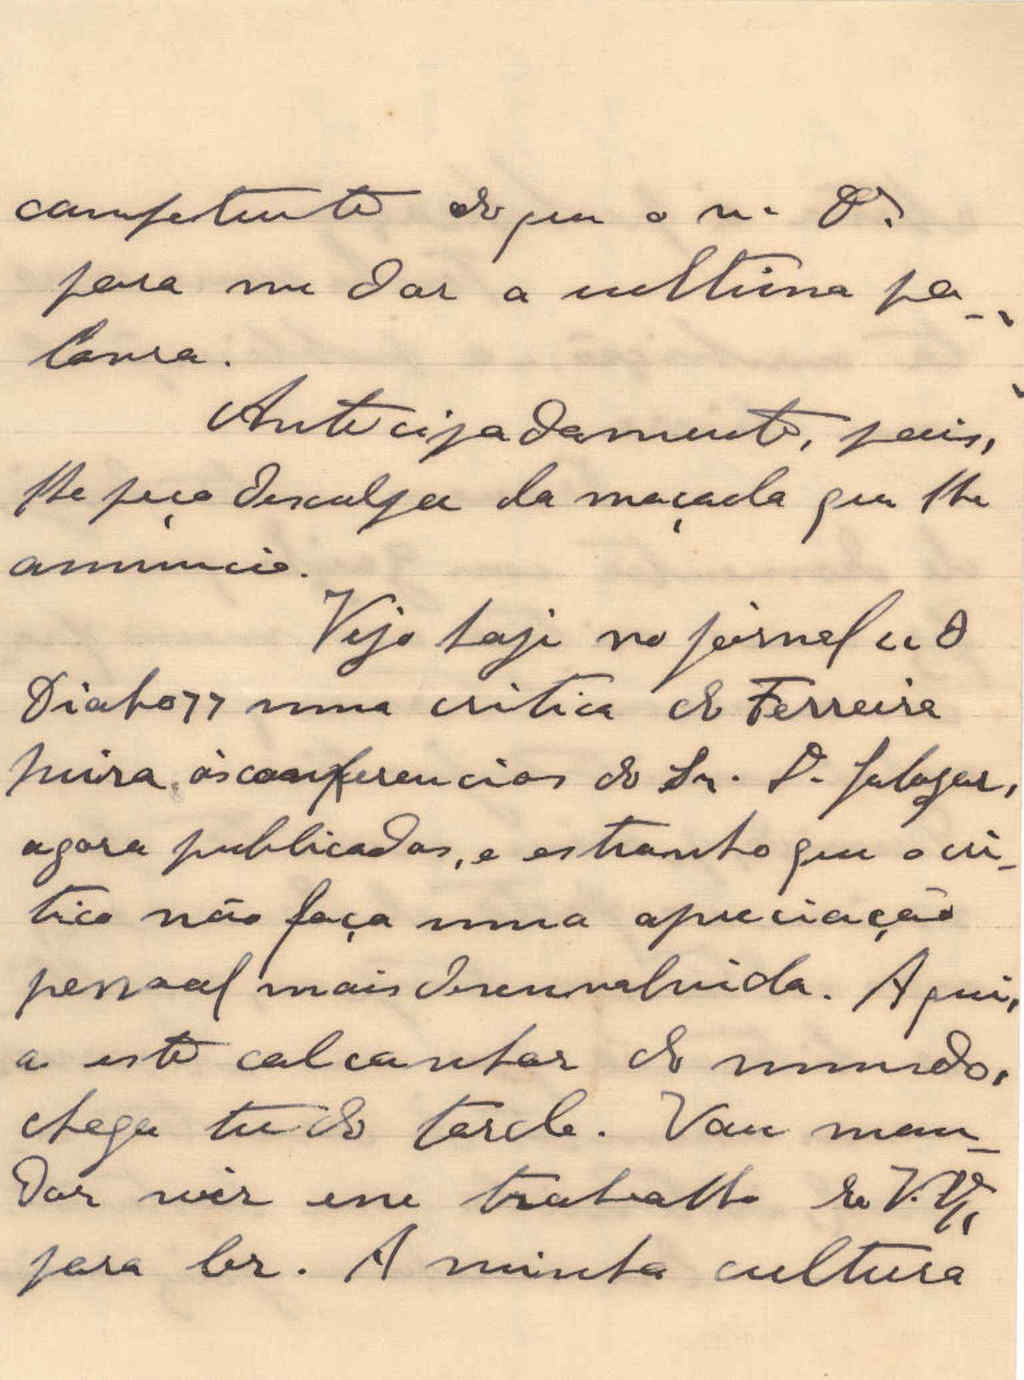 competente do que o sr. Dr.
para me dar a ultima pa-
lavra.
Antecipadamente, pois,
lhe peço desculpa da maçada que lhe
annuncio.
Vejo hoje no jornal "O
Diabo" uma critica de Ferreira
ás conferencias do Sr. Dr. Salazar,
agora publicadas, e estranho que o cri-
tico não faça uma apreciação
pessoal mais desenvolvida. Aqui,
a este calcanhar do mundo,
chega tudo tarde. Vou man-
dar vir esse trabalho de V. Ex.,
para ler. A minha cultura